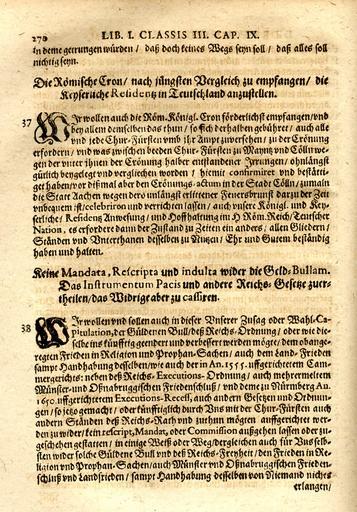 270 LIB. I. CLASSIS III. CAP. IX.
in deme gerungen würden / daß doch keines Wegs seyn soll / daß alles soll
nichtig seyn.
Die Römische Cron / nach jüngsten Vergleich zu empfangen / die
Keyserliche Residentz in Teutschland anzustellen.
37 Wir wollen auch die Röm. Königl. Cron förderlichst empfangen / und
bey allem demselben das thun / so sich derhalben gebühret / auch alle
und jede Chur-Fürsten umb ihr Ampt zuversehen / zu der Crönung
erfordern / und was zwischen beeden Chur-Fürsten zu Mayntz und Cölln we-
gen der unter ihnen der Crönung halber entstandener Irrungen / ohnlängst
gütlich beygelegt und verglichen worden / hiemit confirmirt und bestäti-
get haben / vor dißmal aber den Crönungs-actum in der Stadt Cölln / zumaln
die Stadt Aachen wegen dero unlängst erlittener Feuersbrunst darzu der Zeit
unbequem ist / celebriren und verrichten lassen / auch unsere Königl. und Key-
serliche / Residentz Anwesung / und Hoffhaltung im H. Röm. Reich / Teutscher
Nation, es erfordere dann der Zustand zu Zeiten ein anders / allen Gliedern /
Ständen und Unterthanen desselben zu Nutzen / Ehr und Gutem beständig
haben und halten.
Keine Mandata, Rescripta und indulta wider die Gold-Bullam.
Das Instrumentum Pacis und andere Reichs-Gesetze zuer-
theilen / das Widrige aber zu cassiren.
38 Wir wollen und sollen auch in dieser Unserer Zusag oder Wahl-Ca-
pitulation, der Güldenen Bull / deß Reichs-Ordnung / oder wie die-
selbe ins künfftig geendert und verbessert werden mögte / dem obange-
regten Frieden in Religion und Prophan-Sachen / auch dem Land-Frieden
sampt Handhabung desselben / wie auch der in An. 1555. auffgerichtetem Cam-
mergerichts: neben deß Reichs-Executions-Ordnung / auch mehrermeltem
Münster- und Oßnabruggischen Friedenschluß / und deme zu Nürmberg An.
1650. uffgerichtetem Executions-Recess, auch andern Gesetzen und Ordnun-
gen / so jetzo gemacht / oder künfftiglich durch Uns mit der Chur-Fürsten auch
andern Ständen deß Reichs-Rath und zuthun mögten auffgerichtet wer-
den zuwider / kein rescript, Mandat, oder Commission außgehen lassen oder zu-
geschehen gestatten / in einige Weiß oder Weg / dergleichen auch für Uns selb-
sten wider solche Güldene Bull und deß Reichs-Freyheit / den Frieden in Re-
ligion und Prophan-Sachen / auch Münster und Oßnabruggischen Frieden-
schluß und Landfrieden / sampt Handhabung desselben von Niemand nichts
erlangen /